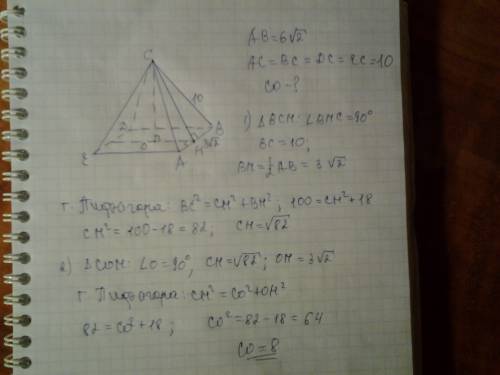 AB = 6√2
AC = BC = DC = EC = 10
CO - ?
1) ΔBCH: ∠BHC = 90°
BC = 10;
BH = 1/2 AB = 3√2
C
10
B
H 3√2
D
O
E
A
т. Пифагора: BC² = CH² + BH²; 100 = CH² + 18
CH² = 100 - 18 = 82; CH = √82
2) ΔCOH: ∠O = 90°, CH = √82; OH = 3√2
т. Пифагора: CH² = CO² + OH²
82 = CO² + 18; CO² = 82 - 18 = 64
CO = 8